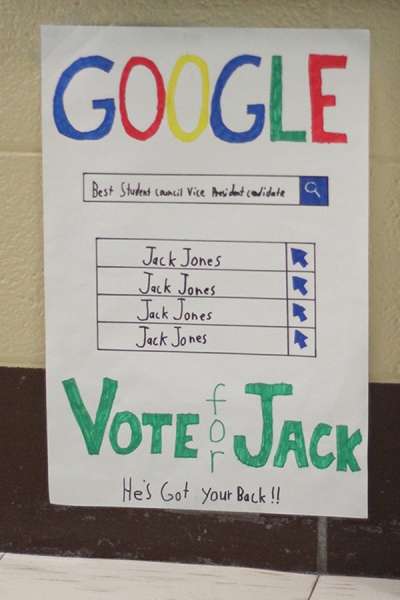 GOOGLE
Best Student council Vice President candidate
Jack Jones
Jack Jones
Jack Jones
Jack Jones
VOTE for JACK
He's Got your Back!!